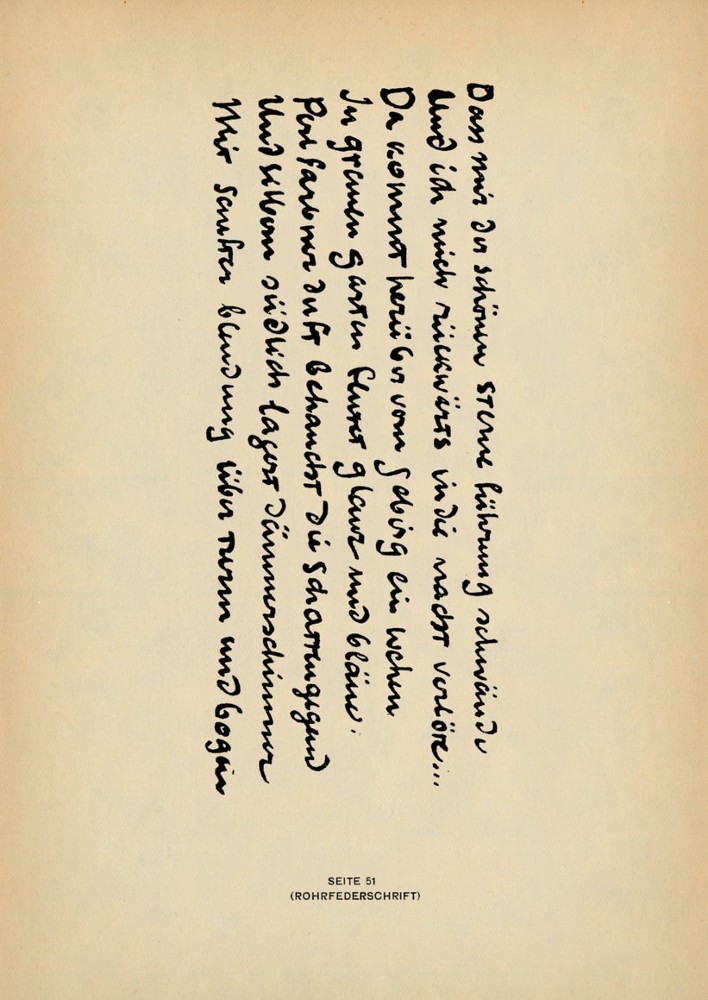 Dass mir der schönen sterne führung schwände
Und ich mich rückwärts in die nacht verlöre...
Da kommt herüber vom gebirg ein wehen
In grauen garten flutet glanz und bläue:
Perlfarbner duft behaucht die schattengegend
Und silbern südlich lagert dämmerschimmer
Mit sanfter blendung über turm und bogen
SEITE 51
(ROHRFEDERSCHRIFT)